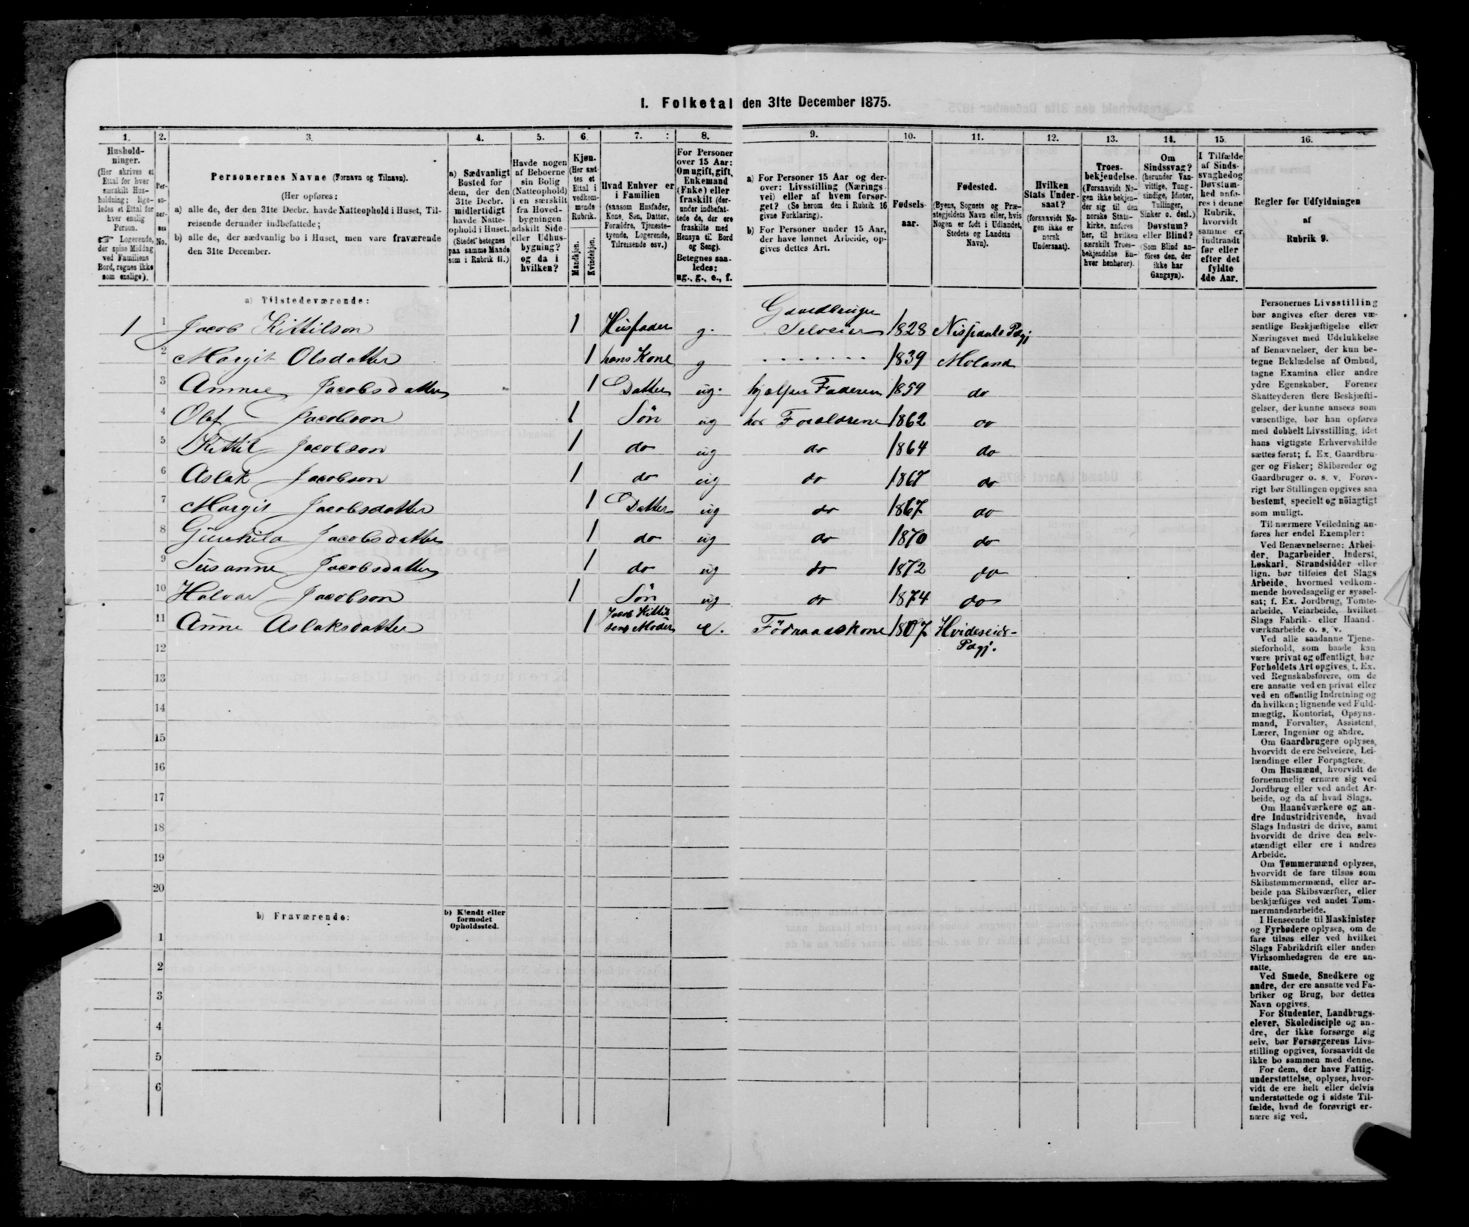 I. Folketal den 31te December 1875.
1. 2. 3. 4. 5. 6. 7. 8. 9. 10. 11. 12. 13. 14. 15. 16.
Hushold-
ninger.
(Her skrives et
Ettal for hver
særskilt Hus-
holdning; lige-
ledes et Ettal for
hver enslig
Person.
Logerende,
der spise Middag
ved Familiens
Bord, regnes ikke
som enslige).
Per-
so-
ner-
nes
No.
Personernes Navne (Fornavn og Tilnavn).
(Her opføres:
a) alle de, der den 31te Decbr. havde Natteophold i Huset, Til-
reisende derunder indbefattede;
b) alle de, der sædvanlig bo i Huset, men vare fraværende
den 31te December.
a) Sædvanligt
Bosted for
dem, der den
31te Decbr.
midlertidigt
havde Natte-
ophold i Huset.
(Stedet betegnes
paa samme Maade
som i Rubrik 11.)
Havde nogen
af Beboerne
sin Bolig
(Natteophold)
i en særskilt
fra Hoved-
bygningen
adskilt Side-
eller Udhus-
bygning?
og da i
hvilken?
Kjøn.
(Her sæt-
tes et
Ettal i
vedkom-
mende
Rubrik.
Mandkjøn.
Kvindekjøn.
Hvad Enhver er
i Familien
(saasom Husfader,
Kone, Søn, Datter,
Forældre, Tjeneste-
tyende, Logerende,
Tilreisende osv.)
For Personer
over 15 Aar:
Om ugift, gift,
Enkemand
(Enke) eller
fraskilt (der-
under indbefat-
tede de, der ere
fraskilte med
Hensyn til Bord
og Seng).
Betegnes saa-
ledes:
ug., g., e., f.
a) For Personer 15 Aar og der-
over: Livsstilling (Nærings-
vei) eller af hvem forsør-
get? (Se herom den i Rubrik 16
givne Forklaring).
b) For Personer under 15 Aar,
der have lønnet Arbeide, op-
gives dettes Art.
Fødsels-
aar.
Fødested.
(Byens, Sognets og Præ-
stegjeldets Navn eller, hvis
Nogen er født i Udlandet,
Stedets og Landets
Navn).
Hvilken
Stats Under-
saat?
(forsaavidt No-
gen ikke er
norsk
Undersaat).
Troes-
bekjendelse.
(Forsaavidt No-
gen ikke bekjen-
der sig til den
norske Stats-
kirke, anføres
her, til hvilken
særskilt Troes-
bekjendelse En-
hver henhører).
Om
Sindssvag?
(herunder Van-
vittige, Tung-
sindige, Idioter,
Tullinger,
Sinker o. desl.)
Døvstum?
eller Blind?
(Som Blind an-
føres den, der
ikke har
Gangsyn).
I Tilfælde
af Sinds-
svaghed og
Døvstum-
hed anfø-
res i denne
Rubrik,
hvorvidt
samme er
indtraadt
før eller
efter det
fyldte
4de Aar.
Regler for Udfyldningen
af
Rubrik 9.
a) Tilstedeværende:
1 1 Jacob Kittilson 1 Husfader g. Gaardbruger Selveier 1828 Nissedals Pdgj
2 Margit Olsdatter 1 hans Kone g 1839 Moland
3 Annie Jacobsdatter 1 Datter ug. hjælper Faderen 1859 do
4 Olaf Jacobson 1 Søn ug hos Forældrene 1862 do
5 Kittil Jacobson 1 do ug do 1864 do
6 Aslak Jacobson 1 do ug do 1867 do
7 Margit Jacobsdatter 1 Datter ug do 1867 do
8 Gunhild Jacobsdatter 1 do ug do 1870 do
9 Susanne Jacobsdatter 1 do ug do 1872 do
10 Halvor Jacobson 1 Søn ug do 1874 do
11 Anne Aslaksdatter 1 Jacob Kittilsens Moder e. Föderaadskone 1807 Hvideseid-
Pdgj.
12
13
14
15
16
17
18
19
20
b) Fraværende:
b) Kjendt eller
formodet
Opholdssted.
1
2
3
4
5
6
Personernes Livsstilling
bør angives efter deres væ-
sentlige Beskjæftigelse eller
Næringsvei med Udelukkelse
af Benævnelser, der kun be-
tegne Beklædelse af Ombud,
tagne Examina eller andre
ydre Egenskaber. Forener
Skatteyderen flere Beskjæfti-
gelser, der kunne ansees som
væsentlige, bør han opføres
med dobbelt Livsstilling, idet
hans vigtigste Erhvervskilde
sættes først; f. Ex. Gaardbru-
ger og Fisker; Skibsreder og
Gaardbruger o. s. v. Forøv-
rigt bør Stillingen opgives saa
bestemt, specielt og nøiagtigt
som muligt.
Til nærmere Veiledning an-
føres her endel Exempler:
Ved Benævnelserne: Arbei-
der, Dagarbeider, Inderst,
Løskarl, Strandsidder eller
lign. bør tilføies det Slags
Arbeide, hvormed vedkom-
mende hovedsagelig er syssel-
sat; f. Ex. Jordbrug, Tomte-
arbeide, Veiarbeide, hvilket
Slags Fabrik- eller Haand-
værksarbeide o. s. v.
Ved alle saadanne Tjene-
steforhold, som baade kan
være privat og offentligt, bør
Forholdets Art opgives, t. Ex.
ved Regnskabsførere, om de
ere ansatte ved en privat eller
ved en offentlig Indretning og
da hvilken; lignende ved Fuld-
mægtig, Kontorist, Opsyns-
mand, Forvalter, Assistent,
Lærer, Ingeniør og andre.
Om Gaardbrugere oplyses,
hvorvidt de ere Selveiere, Lei-
lændinge eller Forpagtere.
Om Husmænd, hvorvidt de
fornemmelig ernære sig ved
Jordbrug eller ved andet Ar-
beide, og da af hvad Slags.
Om Haandværkere og an-
dre Industridrivende, hvad
Slags Industri de drive, samt
hvorvidt de drive den selv-
stændigt eller ere i andres
Arbeide.
Om Tømmermænd oplyses,
hvorvidt de fare tilsøs som
Skibstømmermænd, eller ar-
beide paa Skibsværfter, eller
beskjæftiges ved andet Tøm-
mermandsarbeide.
I Henseende til Maskinister
og Fyrbødere oplyses, om de
fare tilsøs eller ved hvilket
Slags Fabrikdrift eller anden
Virksomhedsgren de ere an-
satte.
Ved Smede, Snedkere og
andre, der ere ansatte ved Fa-
briker og Brug, bør dettes
Navn opgives.
For Studenter, Landbrugs-
elever, Skoledisciple og an-
dre, der ikke forsørge sig
selv, bør Forsørgerens Livs-
stilling opgives, forsaavidt de
ikke bo sammen med denne.
For dem, der have Fattig-
understøttelse, oplyses, hvor-
vidt de ere helt eller delvis
understøttede og i sidste Til-
fælde, hvad de forøvrigt er-
nære sig ved.